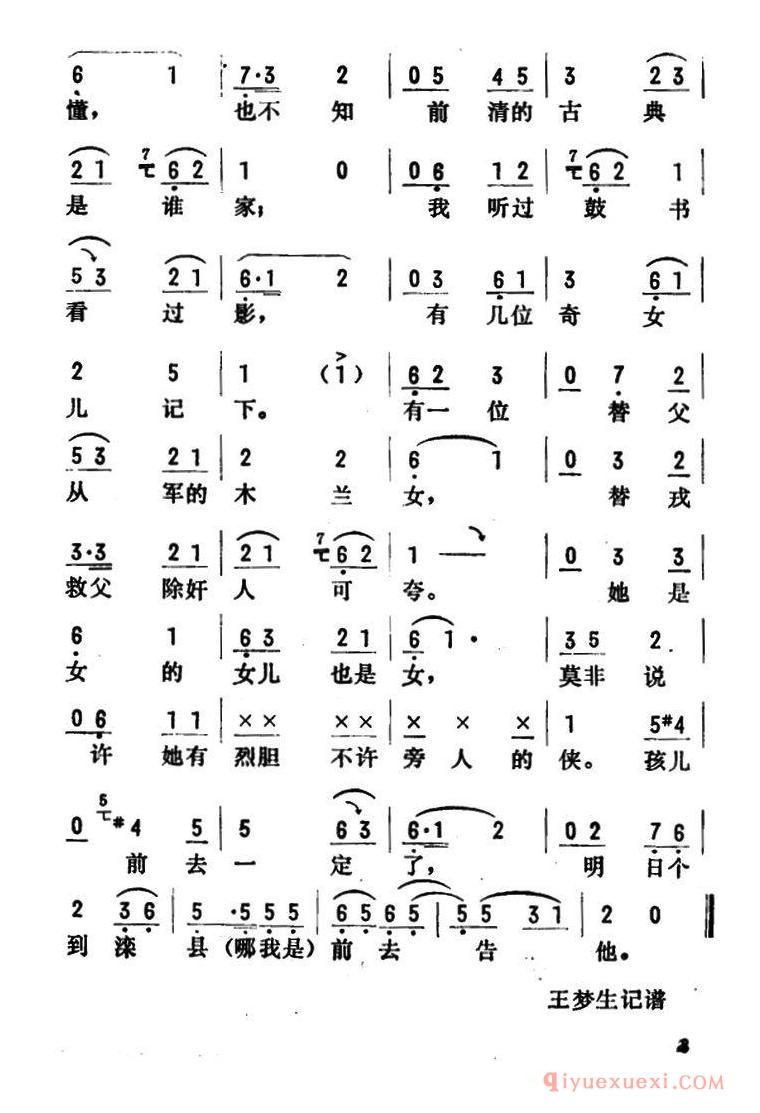 6 1 | 7·3 2 | 0 5 4 5 | 3 2 3 |
懂， 也不 知 前 清的 古 典
2 1 7 6 2 | 1 0 | 0 6 1 2 | 7 6 2 1 |
是 谁 家； 我 听过 鼓 书
5 3 2 1 | 6·1 2 | 0 3 6 1 | 3 6 1 |
看 过 影， 有 几位 奇 女
2 5 | 1 (1) | 6 2 3 | 0 7 2 |
儿 记 下。 有一 位 替 父
5 3 2 1 | 2 2 | 6 1 | 0 3 2 |
从 军的 木 兰 女， 替 戎
3·3 2 1 | 2 1 7 6 2 | 1 — | 0 3 3 |
救父 除奸 人 可 夸。 她 是
6 1 | 6 3 2 1 | 6 1 · | 3 5 2 |
女 的 女儿 也是 女， 莫非 说
0 6 1 1 | × × × × | × × × | 1 5 #4 |
许 她有 烈胆 不许 旁 人 的 侠。 孩儿
0 5 #4 5 | 5 6 3 | 6·1 2 | 0 2 7 6 |
前 去 一 定 了， 明 日个
2 3 6 | 5 ·5 5 5 | 6 5 6 5 | 5 5 3 1 | 2 0 ‖
到 滦 县 (哪我是) 前 去 告 他。
王梦生记谱
qiyuexuexi.com